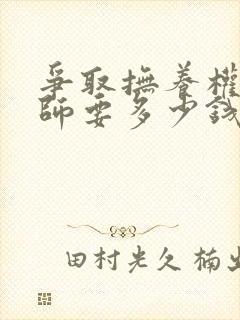 爭取撫養權
師要多少錢
田村光久 楠出